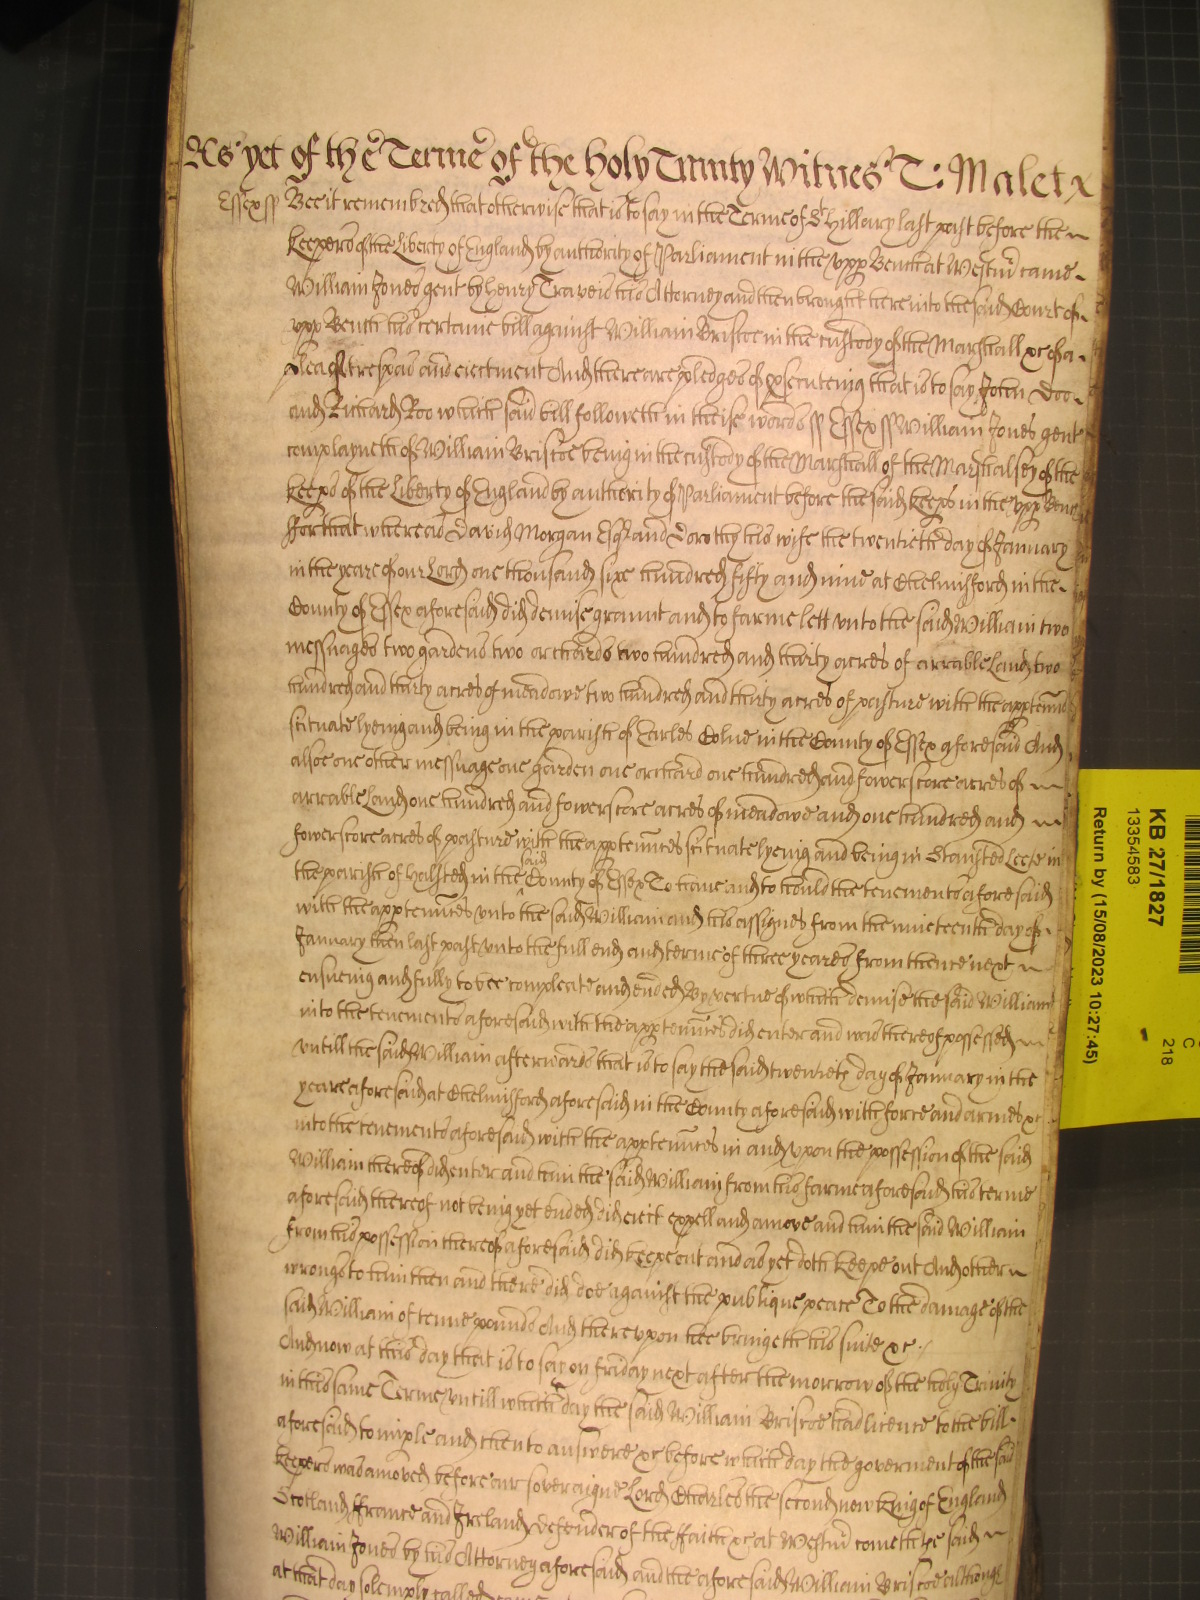 As yet of the Terme of the holy Trinity Witnes T: Malet x
Essex ss Bee it remembred that otherwise that is to say in the Terme of St Hillary last past before the
Keepers of the Liberty of England by authority of Parliament in the upp Bench at Westm came
William Jones gent by Henry Travers his Attorney and then brought here into the said Court of
upp Bench his certaine bill against William Briscoe in the custody of the Marshall &c of a
plea of trespas and eiectment And there are pledges of psecuteing that is to say John Doo
and Richard Roo which said bill followeth in theise words ss Essex ss William Jones gent
complayneth of William Briscoe being in the custody of the Marshall of the Marshalsey of the
keeps of the Liberty of England by authority of Parliament before the said keeps in the upp Bench
For that whereas David Morgan Esqr and Dorothy his wife the twentieth day of January
in the yeare of our Lord one thousand six hundred fifty and nine at Chelmisford in the
County of Essex aforesaid did demise graunt and to farme lett unto the said William two
messuages two gardens two orchards two hundred and thirty acres of arrable Land two
hundred and thirty acres of meadowe two hundred and thirty acres of pasture with the apptennces
scituate lyeing and being in the parish of Earles Colne in the County of Essex aforesaid And
alsoe one other messuage one garden one orchard one hundred and fowerscore acres of
arrable Land one hundred and fowerscore acres of meadowe and one hundred and
fowerscore acres of pasture with the apptennces scituate lyeing and being in Stansted Leete in
the parish of Halsted in the said County of Essex To have and to hould the tenements aforesaid
with the apptennces unto the said William and his assignes from the nineteenth day of
January then last past unto the full end and terme of three yeares from thence next
ensueing and fully to bee compleate and ended By vertue of which demise the said William
into the tenements aforesaid with the apptennces did enter and was thereof possessed
untill the said William afterwards that is to say the said twentieth day of January in the
yeare aforesaid at Chelmisford aforesaid in the County aforesaid with force and armes &c
into the tenements aforesaid with the apptennces in and upon the possession of the said
William thereof did enter and him the said William from his farme aforesaid his terme
aforesaid thereof not being yet ended did eiect expell and amove and him the said William
from his possession thereof aforesaid did keepe out and as yet doth keepe out And other
wrongs to him then and there did doe against the publique peace To the damage of the
said William of tenne pounds And thereupon hee bringeth his suite &c
And now at this day that is to say on Friday next after the morrow of the holy Trinity
in this same Terme untill which day the said William Briscoe had licence to the bill
aforesaid to imple and then to answere &c before which day the goverment of the said
Keepers was amoved before our soveraigne Lord Charles the second now King of England
Scotland ffrance and Ireland defender of the ffaith &c at Westm cometh the said
William Jones by his Attorney aforesaid and the aforesaid William Briscoe although
at that day solemply called
KB 27/1827
13354583
Return by (15/08/2023 10:27:45)
C
218